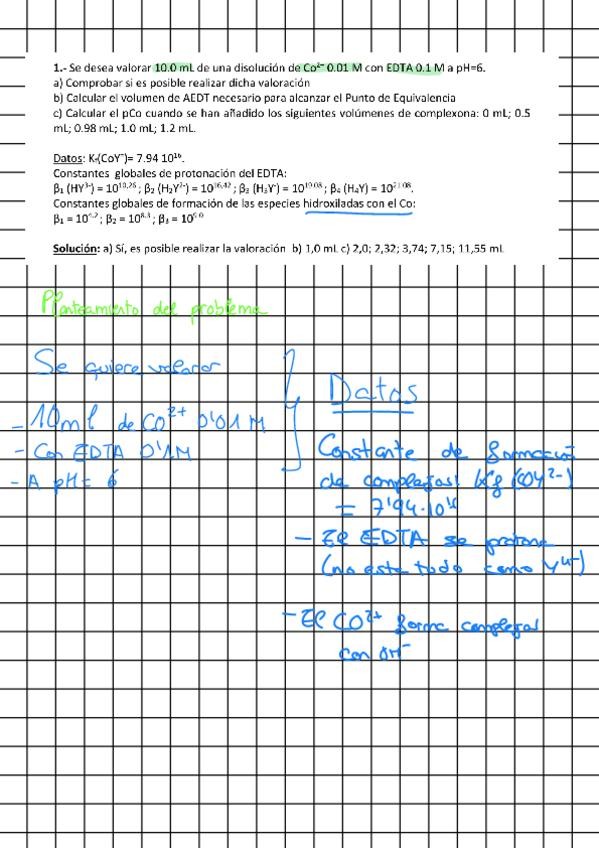 1.- Se desea valorar 10.0 mL de una disolución de Co²⁺ 0.01 M con EDTA 0.1 M a pH=6.
a) Comprobar si es posible realizar dicha valoración
b) Calcular el volumen de AEDT necesario para alcanzar el Punto de Equivalencia
c) Calcular el pCo cuando se han añadido los siguientes volúmenes de complexona: 0 mL; 0.5
mL; 0.98 mL; 1.0 mL; 1.2 mL.
Datos: 7.94 10¹⁶.
Constantes globales de protonación del EDTA:
β₁ (HY³⁻) = 10¹⁰·²⁶ ; β₂ (H₂Y²⁻) = 10¹⁶·⁴² ; β₃ (H₃Y⁻) = 10¹⁹·⁰⁸ ; β₄ (H₄Y) = 10²¹·⁰⁸.
Constantes globales de formación de las especies hidroxiladas con el Co:
β₁ = ; β₂ = ; β₃ =
Solución: a) Sí, es posible realizar la valoración b) 1,0 mL c) 2,0; 2,32; 3,74; 7,15; 11,55 mL
Planteamiento del problema
Se quiere valorar
- 10ml de Co²⁺ 0'01 M
- Con EDTA 0'1M
- A pH = 6
Datos
Constante de formación
de complejos: Kf (COY²⁻)
= 7'94·10¹⁶
- El EDTA se protona
(no este todo como Y⁴⁻)
- El CO²⁺ forma complejos
con OH⁻